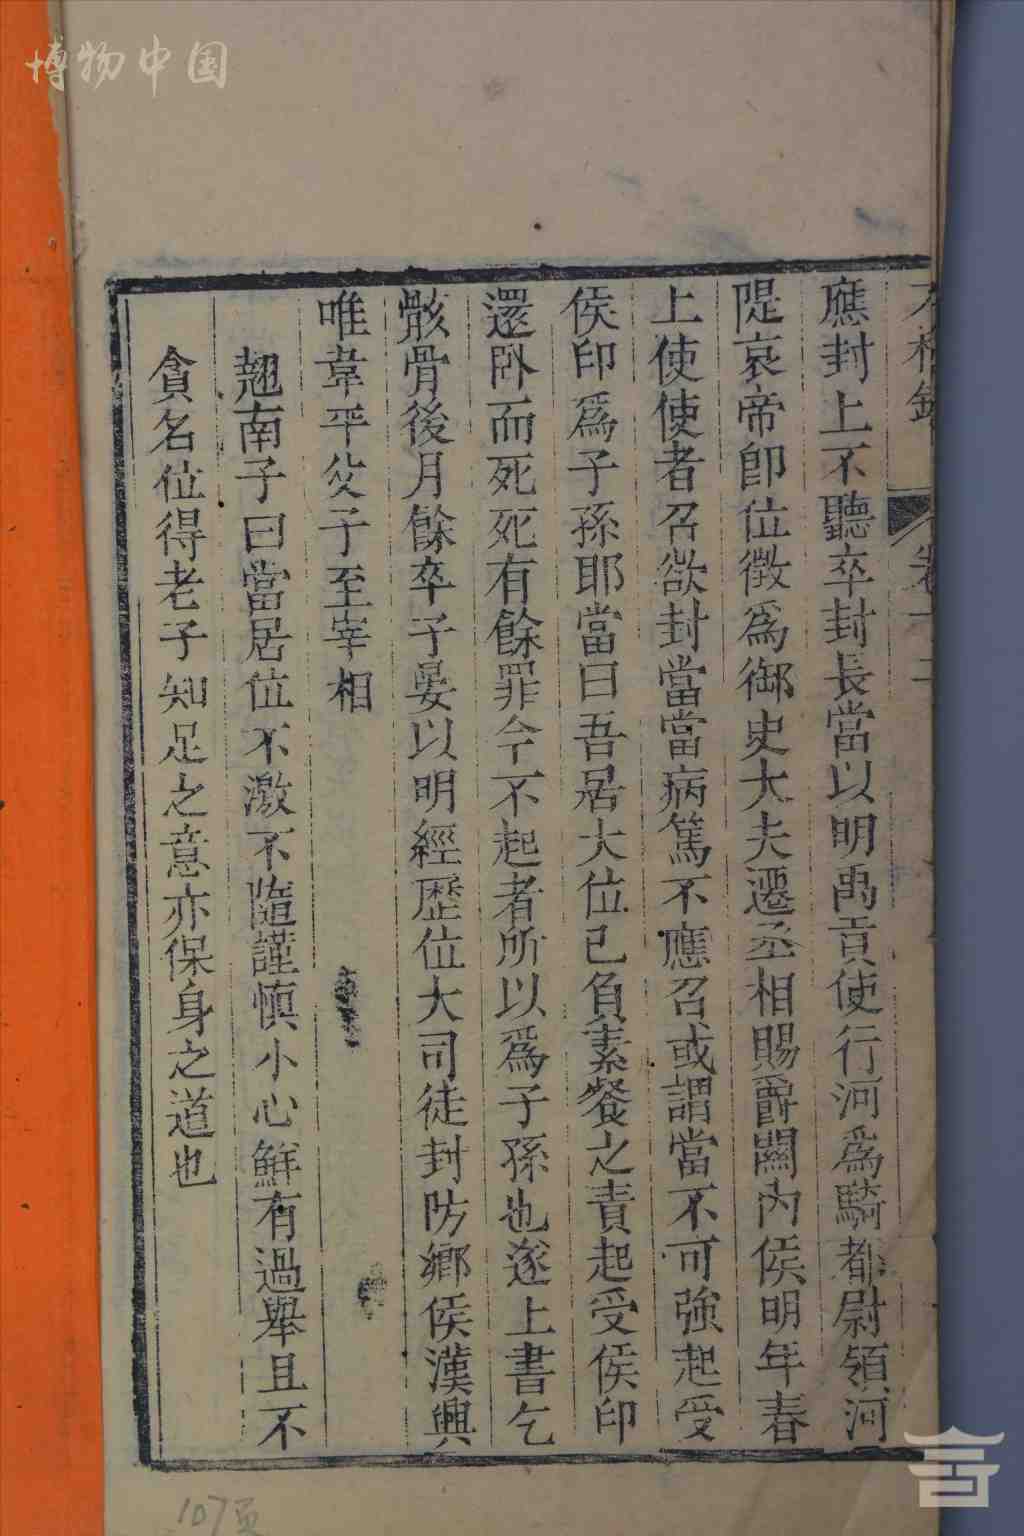 博物中国
卷十二
應封上不聽卒封長當以明禹貢使行河爲騎都尉領河
隄哀帝卽位徵爲御史大夫遷丞相賜爵關內侯明年春
上使使者召欲封當當病篤不應召或謂當不可強起受
侯印爲子孫耶當曰吾居大位已負素餐之責起受侯印
還卧而死死有餘罪今不起者所以爲子孫也遂上書乞
骸骨後月餘卒子晏以明經歷位大司徒封防鄉侯漢興
唯韋平父子至宰相
趐南子曰當居位不激不隨謹慎小心鮮有過舉且不
貪名位得老子知足之意亦保身之道也
107页